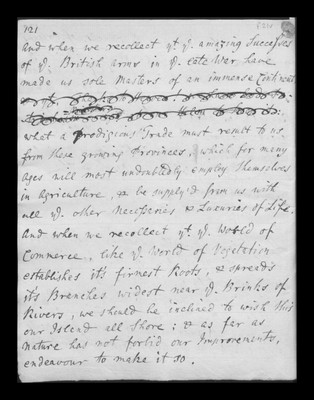 121
and when we recollect yt. ye. amazing Successes
of ye. British arms in ye. late War have
made us sole Masters of an immense Continent
what a prodigious Trade must result to us
from these growing Provinces, which for many
Ages will most undoubtedly employ themselves
in Agriculture, & be supply'd from us with
all ye. other Necessaries & Luxuries of Life,
And when we recollect yt. ye. World of
Commerce, like ye. World of Vegetation
establishes it's firmest Roots, & spreads
it's Branches widest near ye. Brinks of
Rivers, we should be inclined to wish this
our Island all Shore; & as far as
Nature has not forbid our Improvements,
endeavour to make it so.